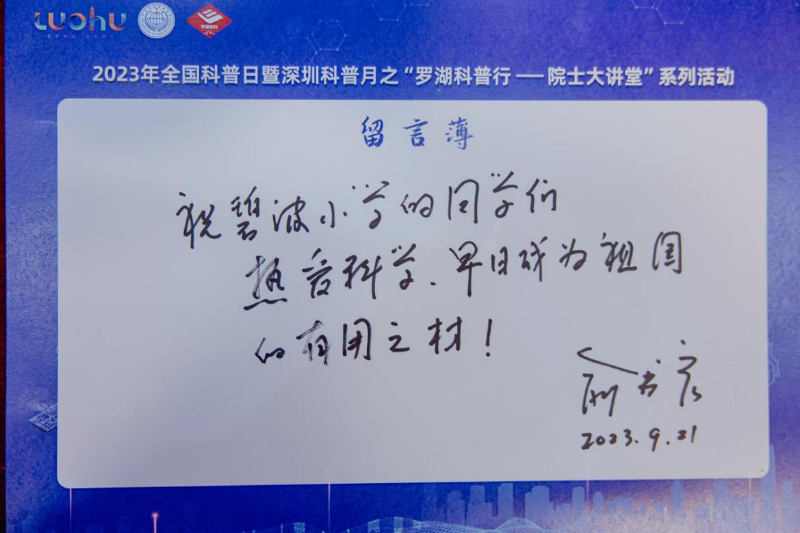 LUOHU
2023年全国科普日暨深圳科普月之“罗湖科普行——院士大讲堂”系列活动
留言薄
祝碧波小学的同学们
热爱科学、早日成为祖国
的有用之材！
2023.9.21